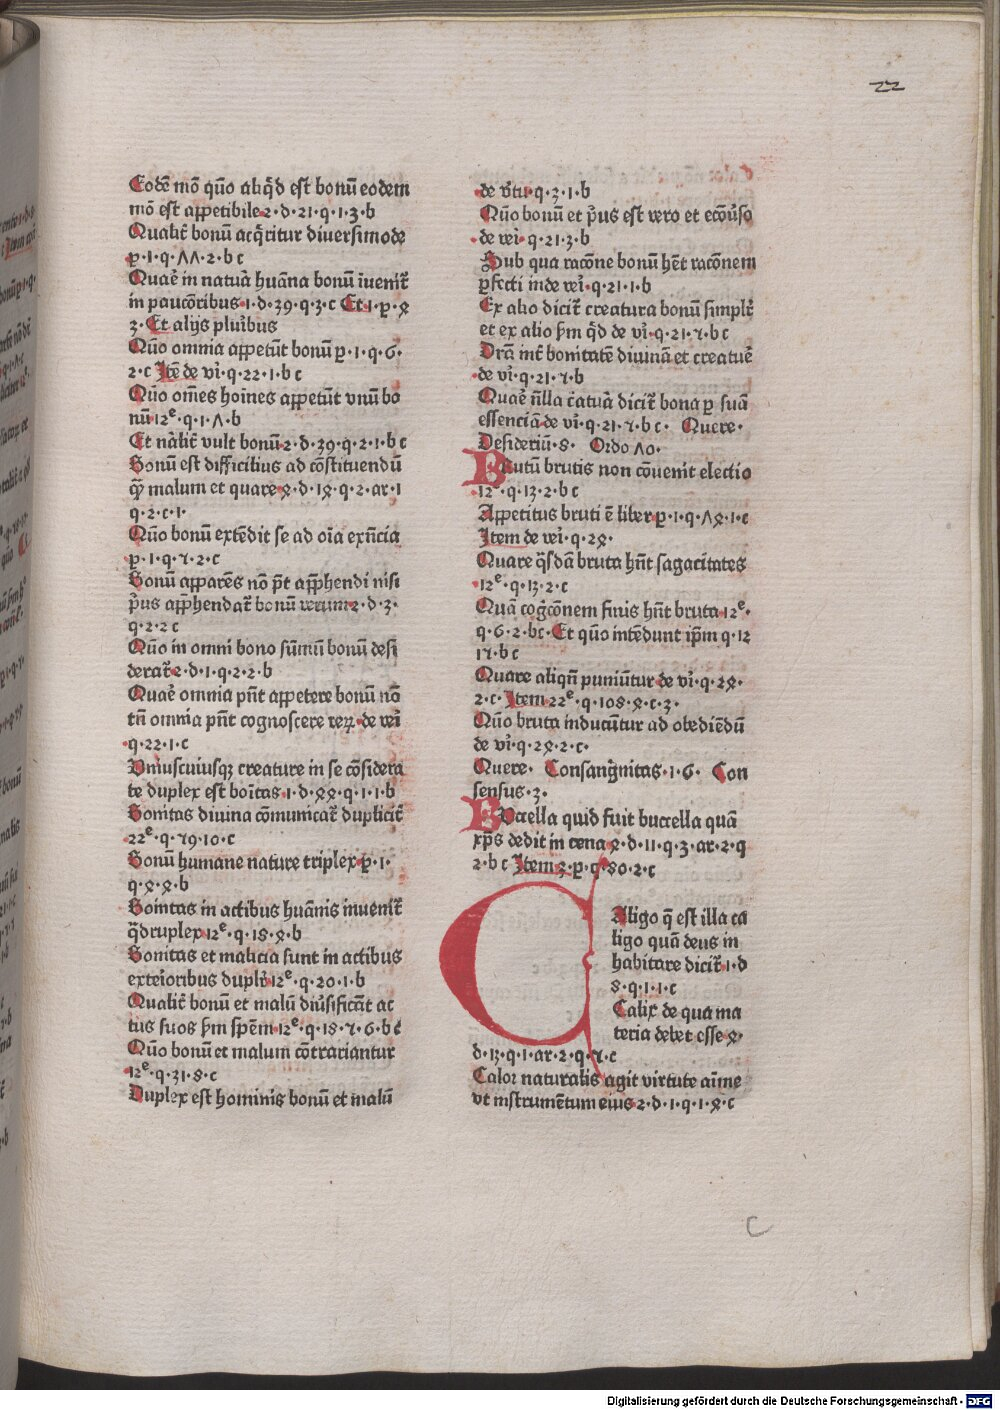 22
Eodē mō quō aliq̄d est bonū eodem
mō est appetibile 2·d·21·q·1·3·b
Qualit̄ bonū acq̄ritur diuersimode
p̱·1·q·ΛΛ·2·b c
Quaē in natuā huāna bonū īuenit̄
in pauc̄oribus·1·d·39·q·3·c Et·1·p̱·ꝯ
3·Et alijs pluribus
Quō omnia appetūt bonū p̱·1·q·6·
2·c Itē de vi̅·q·22·1·b c
Quō om̄es hoīnes appetūt vnū bo
nū 12ᵉ·q·1·Λ·b
Et nālit̄ vult bonū 2·d·39·q·2·1·b c
Bonū est difficilius ad cōstituendū
q̄ malum et quare ꝯ·d·1ꝯ·q·2·ar·1
q·2·c·1·
Quō bonū extēdit se ad oīa exn̄cia
p̱·1·q·ʌ·2·c
Bonū apparēs nō p̄t app̄hendi nisi
p̄us app̄hendat̄ bonū verum 2·d·3·
q·2·2 c
Quō in omni bono sūmū bonū desi
derat̄ 2·d·1·q·2·2·b
Quaē omnia pn̄t appetere bonū nō
tn̄ omnia pn̄t cognoscere veꝝ·de vei̅
q·22·1·c
Vniuscuiusqꝫ creature in se cōsidera
te duplex est boītas·1·d·ꝯꝯ·q·1·1·b
Bonitas diuina cōmunicat̄ duplicit̄
22ᵉ·q·ʌ9·10·c
Bonū humane nature triplex p̱·1·
q·ꝯ·ꝯ·b
Boīntas in actibus huānis inuenit̄
q̄druplex 12ᵉ·q·18·ꝯ·b
Bonitas et malicia sunt in actibus
exterioribus duplr̄ 12ᵉ·q·20·1·b
Qualit̄ bonū et malū diūsificāt ac
tus suos ẜm spēm 12ᵉ·q·18·ʌ·6·b c
Quō bonū et malum cōtrariantur
12ᵉ·q·31·8·c
Duplex est hominis bonū et malū
de v̄tu·q·2·1·b
Quō bonū et p̄us est vero et ecōuso
de vei̅·q·21·3·b
Sub qua racōne bonū hēt racōnem
ꝑfecti inde vei̅·q·21·1·b
Ex alio dicit̄ creatura bonū simplr̄
et ex alio ẜm q̄d de vi̅·q·21·ʌ·b c
Drām int̄ bonitatē diuinā et creatuē
de vi̅·q·21·ʌ·b
Quaē n̄lla c̄atuā dicit̄ bona ꝑ suā
essenciā de vi̅·q·21·ʌ·b c· Quere·
Desideriū·8· Ordo Λ0·
Brutū brutis non cōuenit electio
12ᵉ·q·13·2·b c
Appetitus bruti ē liber p̱·1·q·Λꝯ·1·c
Item de vei̅·q·2ꝯ·
Quare q̄sdā bruta hn̄t sagacitates
12ᵉ·q·13·2·c
Quā cog̅cōnem finis hn̄t bruta 12ᵉ·
q·6·2·bc·Et quō intēdunt ip̄m q·12
1ʌ·b c
Quare aliqn̄ puniūtur de vi̅·q·2ꝯ·
2·c·Item 22ᵉ·q·108·ꝯ·c·3·
Quō bruta inducūtur ad obediēdū
de vi̅·q·2ꝯ·2·c·
Quere· Consang̅nitas·1·6· Con
sensus·3·
Buccella quid fuit buccella quā
xp̄s dedit in cena ꝯ·d·11·q·3·ar·2·q
2·b c Item 3·p̱·q·80·2·c
Caligo q̄ est illa ca
ligo quā deus in
habitare dicit̄ 1·d
8·q·1·1·c
Calix de qua ma
teria debet esse ꝯ·
d·13·q·1·ar·2·q·ʌ·c
Calor naturalis agit virtute aīme
vt instrumētum eius 2·d·1·q·1·ꝯ·c
C
Digitalisierung gefördert durch die Deutsche Forschungsgemeinschaft · DFG